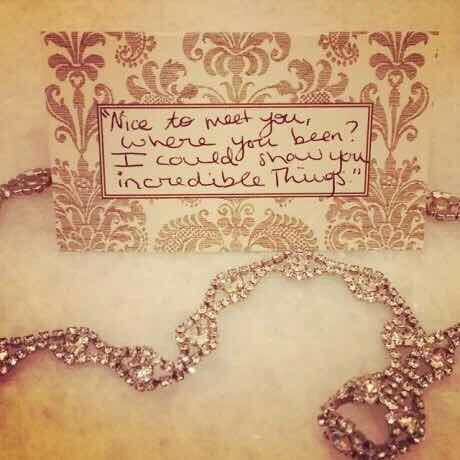 "Nice to meet you,
where you been?
I could show you
incredible Things."